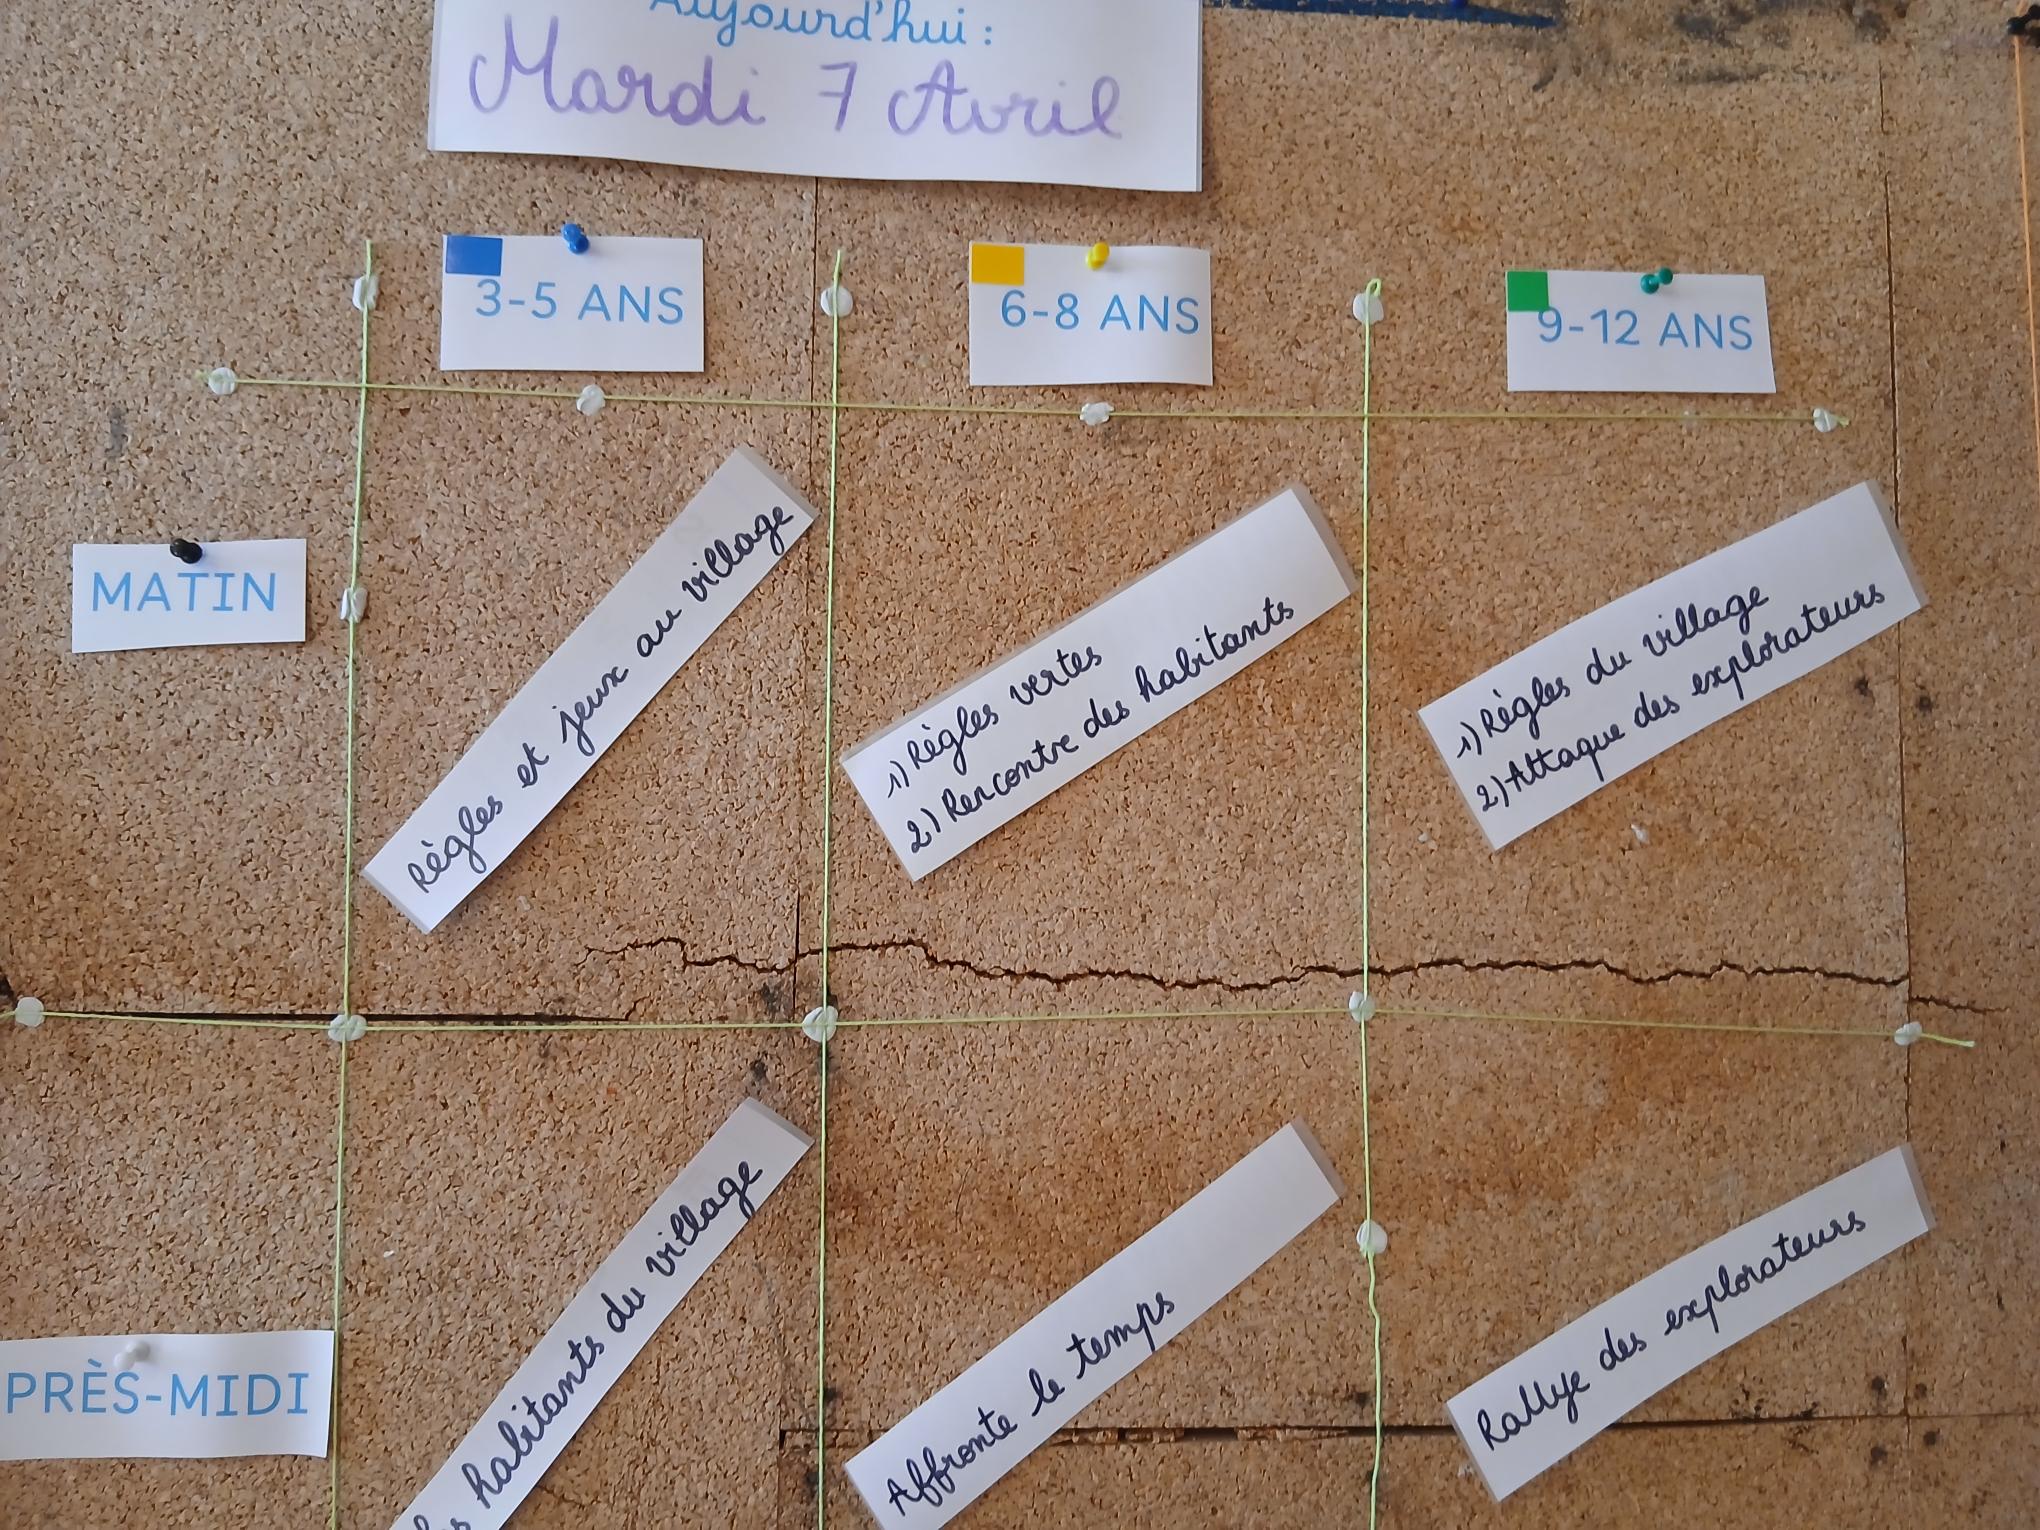 Aujourd'hui :
Mardi 7 Avril
3-5 ANS
6-8 ANS
9-12 ANS
MATIN
Règles et jeux au village
1) Règles vertes
2) Rencontre des habitants
1) Règles du village
2) Attaque des explorateurs
PRÈS-MIDI
habitants du village
Affronte le temps
Rallye des explorateurs